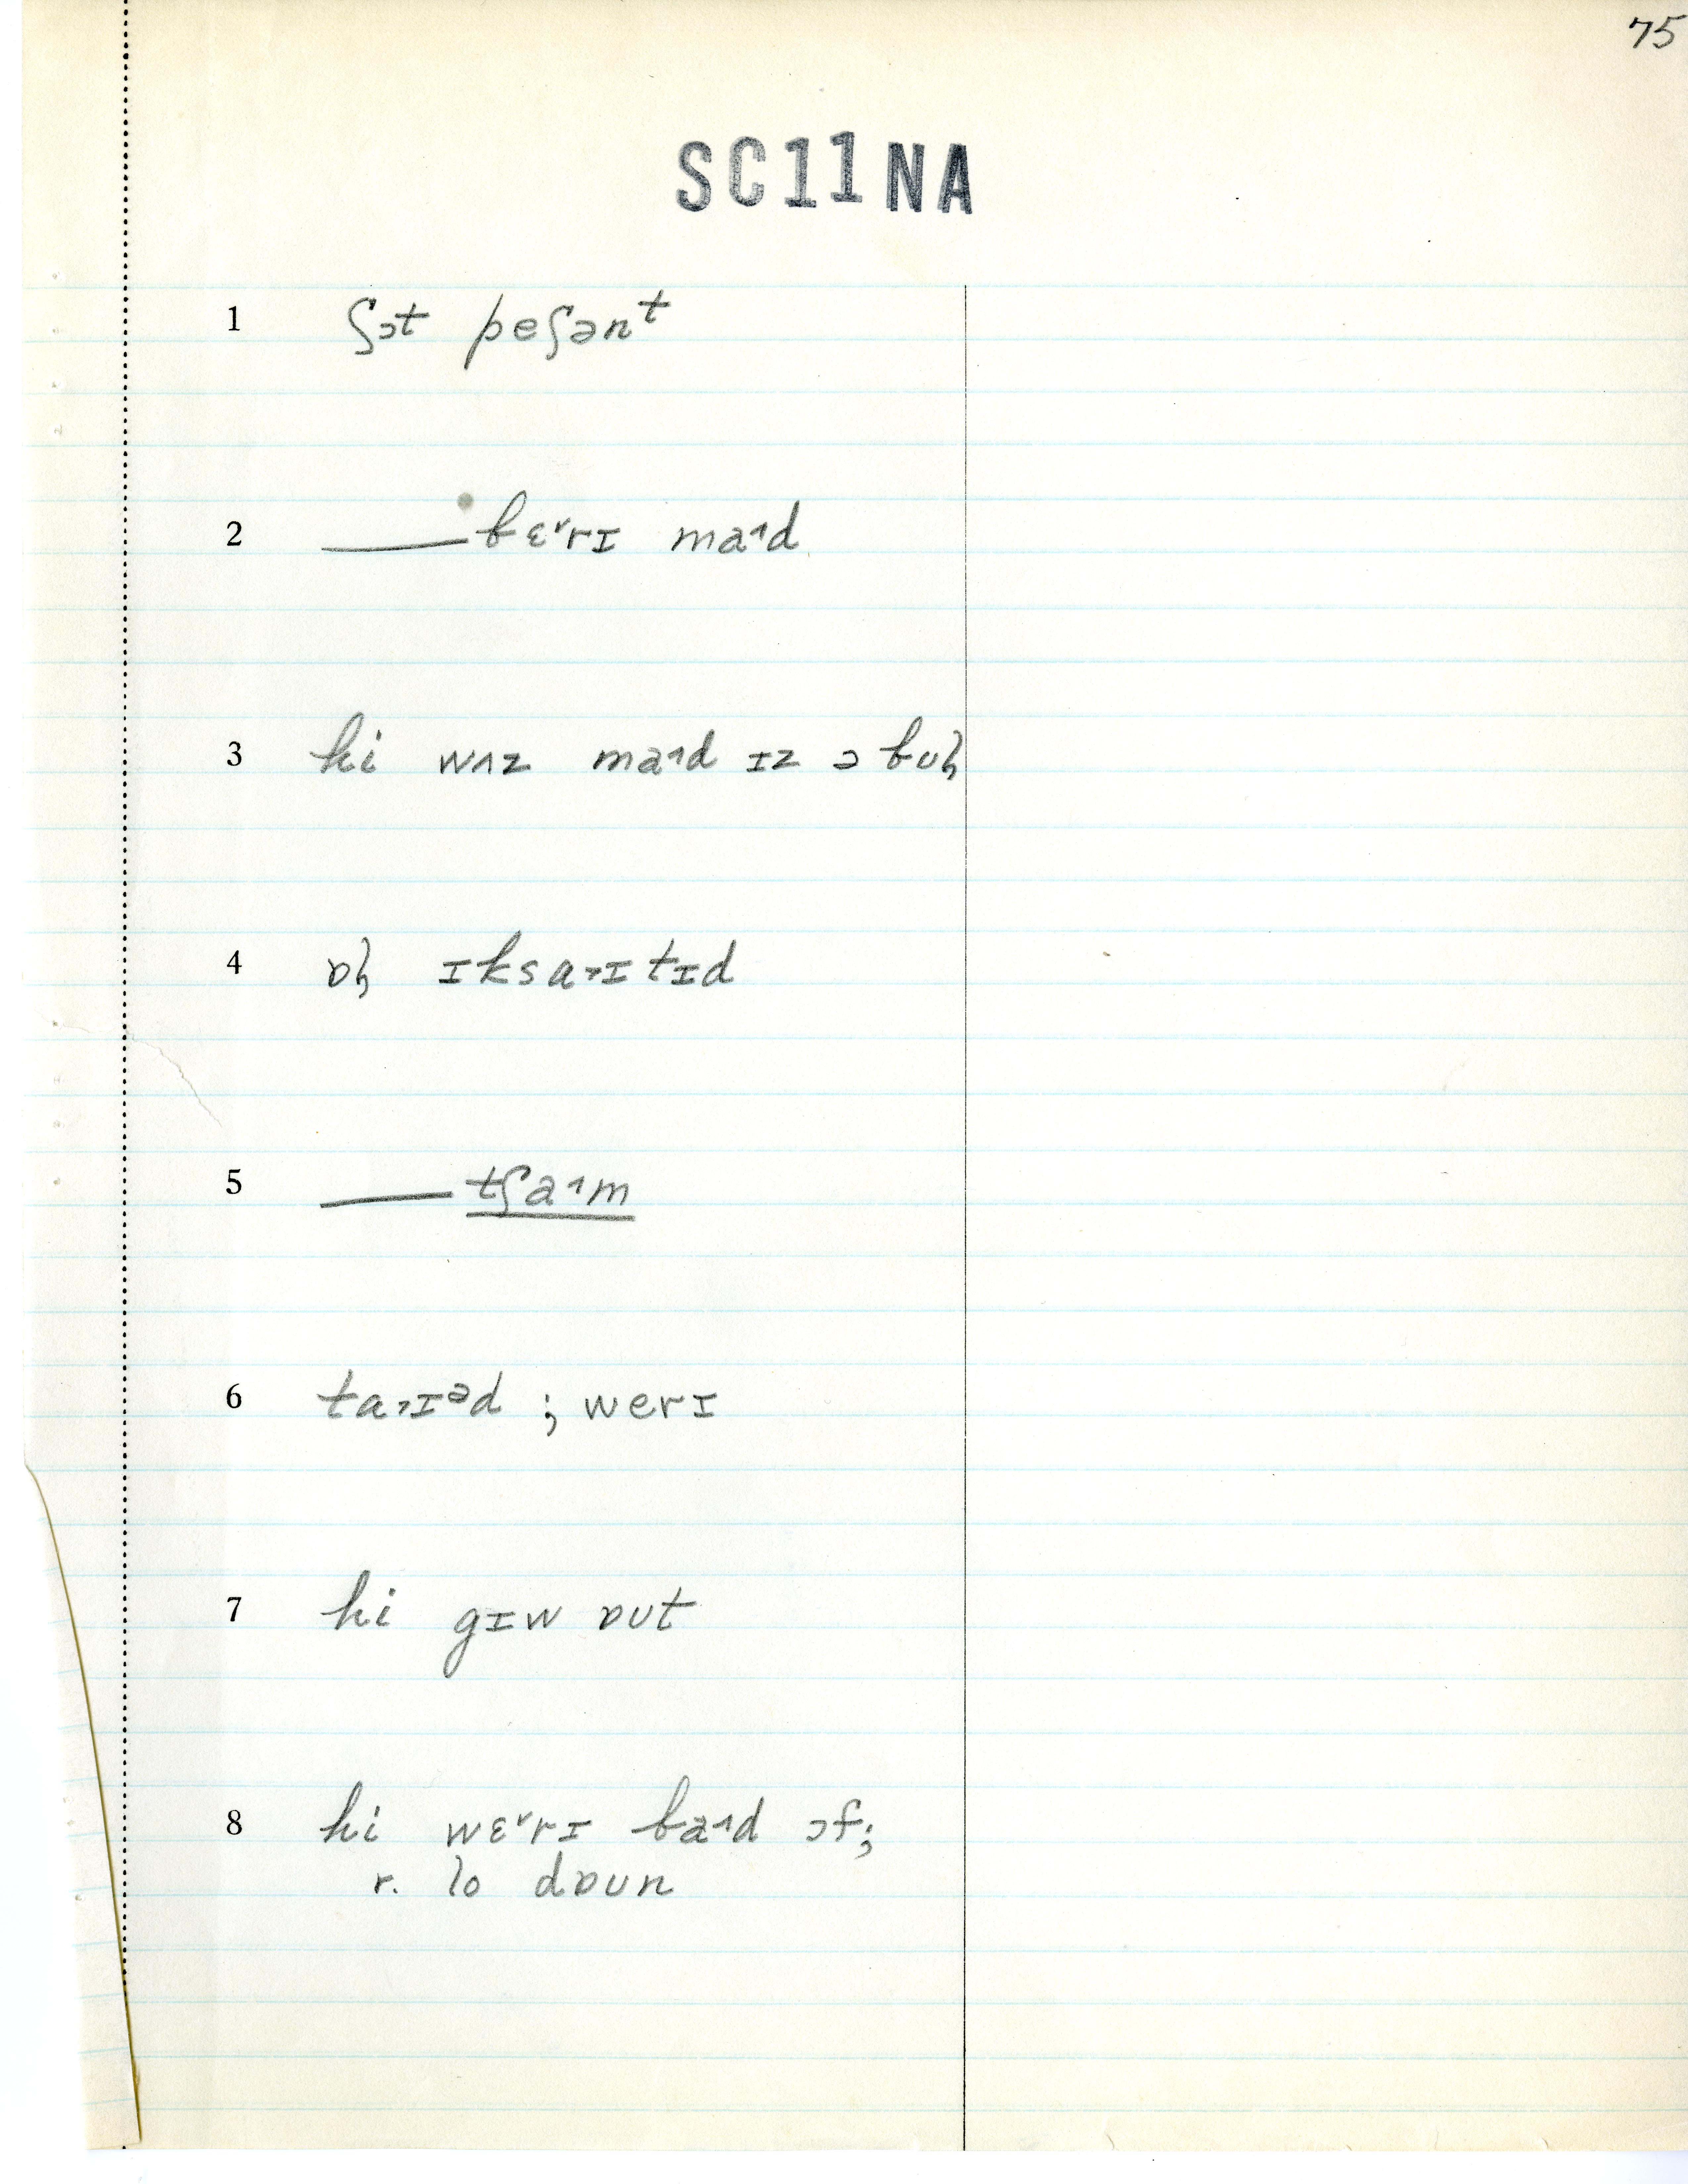 75
SC11NA
1 ʃɔt peʃənᵗ
2 ____ bɛ˅rɪ ma˄d
3 hi wʌz ma˄d ɪz ɔ bʊɫ
4 ɒɫ ɪksa˃ɪtɪd
5 ____ tʃa˄m
6 ta˃ɪᵊd ; werɪ
7 hi gɪw ɒut
8 hi wɛ˅rɪ ba˄d ɔf;
r. lo dɒun